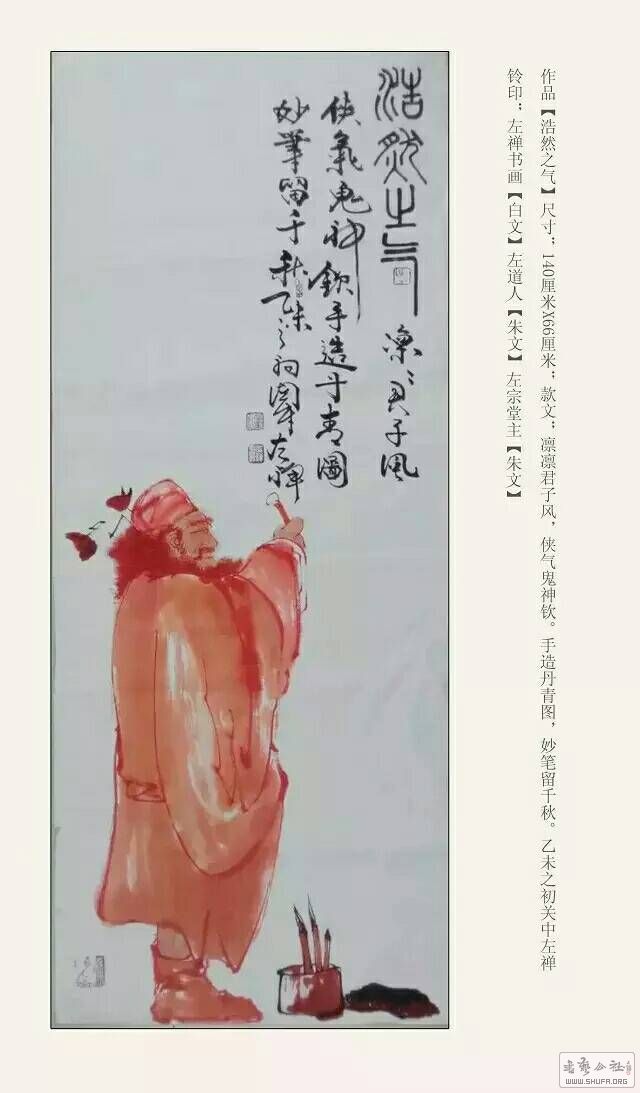 作品【浩然之气】尺寸；140厘米X66厘米；款文；凛凛君子风，侠气鬼神钦。手造丹青图，妙笔留千秋。乙未之初关中左禅
铃印；左禅书画【白文】左道人【朱文】左宗堂主【朱文】
浩然之气 凜〻君子風
俠氣鬼神欽手造丹青圖
妙筆留千秋乙未之初關中左禪
書藝公社
WWW.SHUFA.ORG